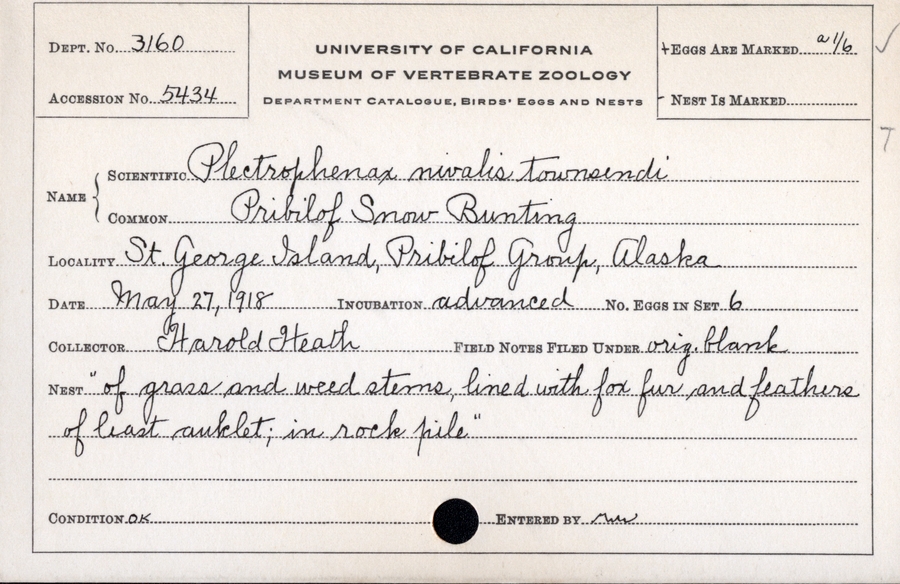 DEPT. No. 3160
ACCESSION No. 5434
UNIVERSITY OF CALIFORNIA
MUSEUM OF VERTEBRATE ZOOLOGY
DEPARTMENT CATALOGUE, BIRDS' EGGS AND NESTS
EGGS ARE MARKED a 1/6
NEST IS MARKED
7
NAME
SCIENTIFIC Plectrophenax nivalis townsendi
COMMON Pribilof Snow Bunting
LOCALITY St. George Island, Pribilof Group, Alaska
DATE May 27, 1918 INCUBATION advanced NO. EGGS IN SET 6
COLLECTOR Harold Heath FIELD NOTES FILED UNDER orig. blank
NEST "of grass and weed stems, lined with fox fur and feathers
of least auklet; in rock pile"
CONDITION OK ENTERED BY